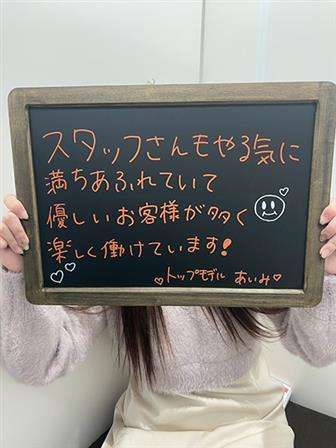 スタッフさんもやる気に
満ちあふれていて
優しいお客様が多く
楽しく働けています!
♡トップモデル あいみ♡